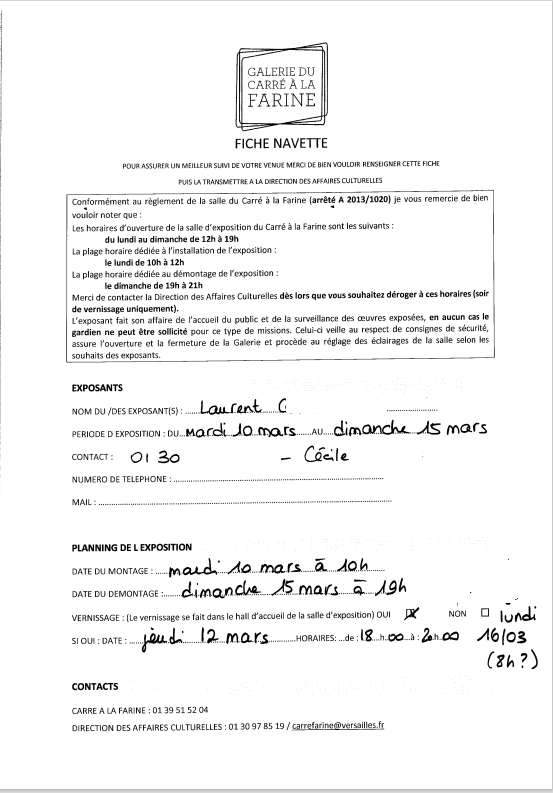 GALERIE DU
CARRÉ À LA
FARINE
FICHE NAVETTE
POUR ASSURER UN MEILLEUR SUIVI DE VOTRE VENUE MERCI DE BIEN VOULOIR RENSEIGNER CETTE FICHE
PUIS LA TRANSMETTRE A LA DIRECTION DES AFFAIRES CULTURELLES
Conformément au règlement de la salle du Carré à la Farine (arrêté A 2013/1020) je vous remercie de bien
vouloir noter que :
Les horaires d'ouverture de la salle d'exposition du Carré à la Farine sont les suivants :
du lundi au dimanche de 12h à 19h
La plage horaire dédiée à l'installation de l'exposition :
le lundi de 10h à 12h
La plage horaire dédiée au démontage de l'exposition :
le dimanche de 19h à 21h
Merci de contacter la Direction des Affaires Culturelles dès lors que vous souhaitez déroger à ces horaires (soir
de vernissage uniquement).
L'exposant fait son affaire de l'accueil du public et de la surveillance des œuvres exposées, en aucun cas le
gardien ne peut être sollicité pour ce type de missions. Celui-ci veille au respect de consignes de sécurité,
assure l'ouverture et la fermeture de la Galerie et procède au réglage des éclairages de la salle selon les
souhaits des exposants.
EXPOSANTS
NOM DU /DES EXPOSANT(S) : Laurent C
PERIODE D EXPOSITION : DU mardi 10 mars AU dimanche 15 mars
CONTACT : 01 30 – Cécile
NUMERO DE TELEPHONE :
MAIL :
PLANNING DE L EXPOSITION
DATE DU MONTAGE : mardi 10 mars à 10h
DATE DU DEMONTAGE : dimanche 15 mars à 19h
VERNISSAGE : (Le vernissage se fait dans le hall d'accueil de la salle d'exposition) OUI ☒ NON ☐ lundi
SI OUI : DATE : jeudi 12 mars HORAIRES: de : 18 h 00 à : 20 h 00 16/03
(8h ?)
CONTACTS
CARRE A LA FARINE : 01 39 51 52 04
DIRECTION DES AFFAIRES CULTURELLES : 01 30 97 85 19 / carrefarine@versailles.fr